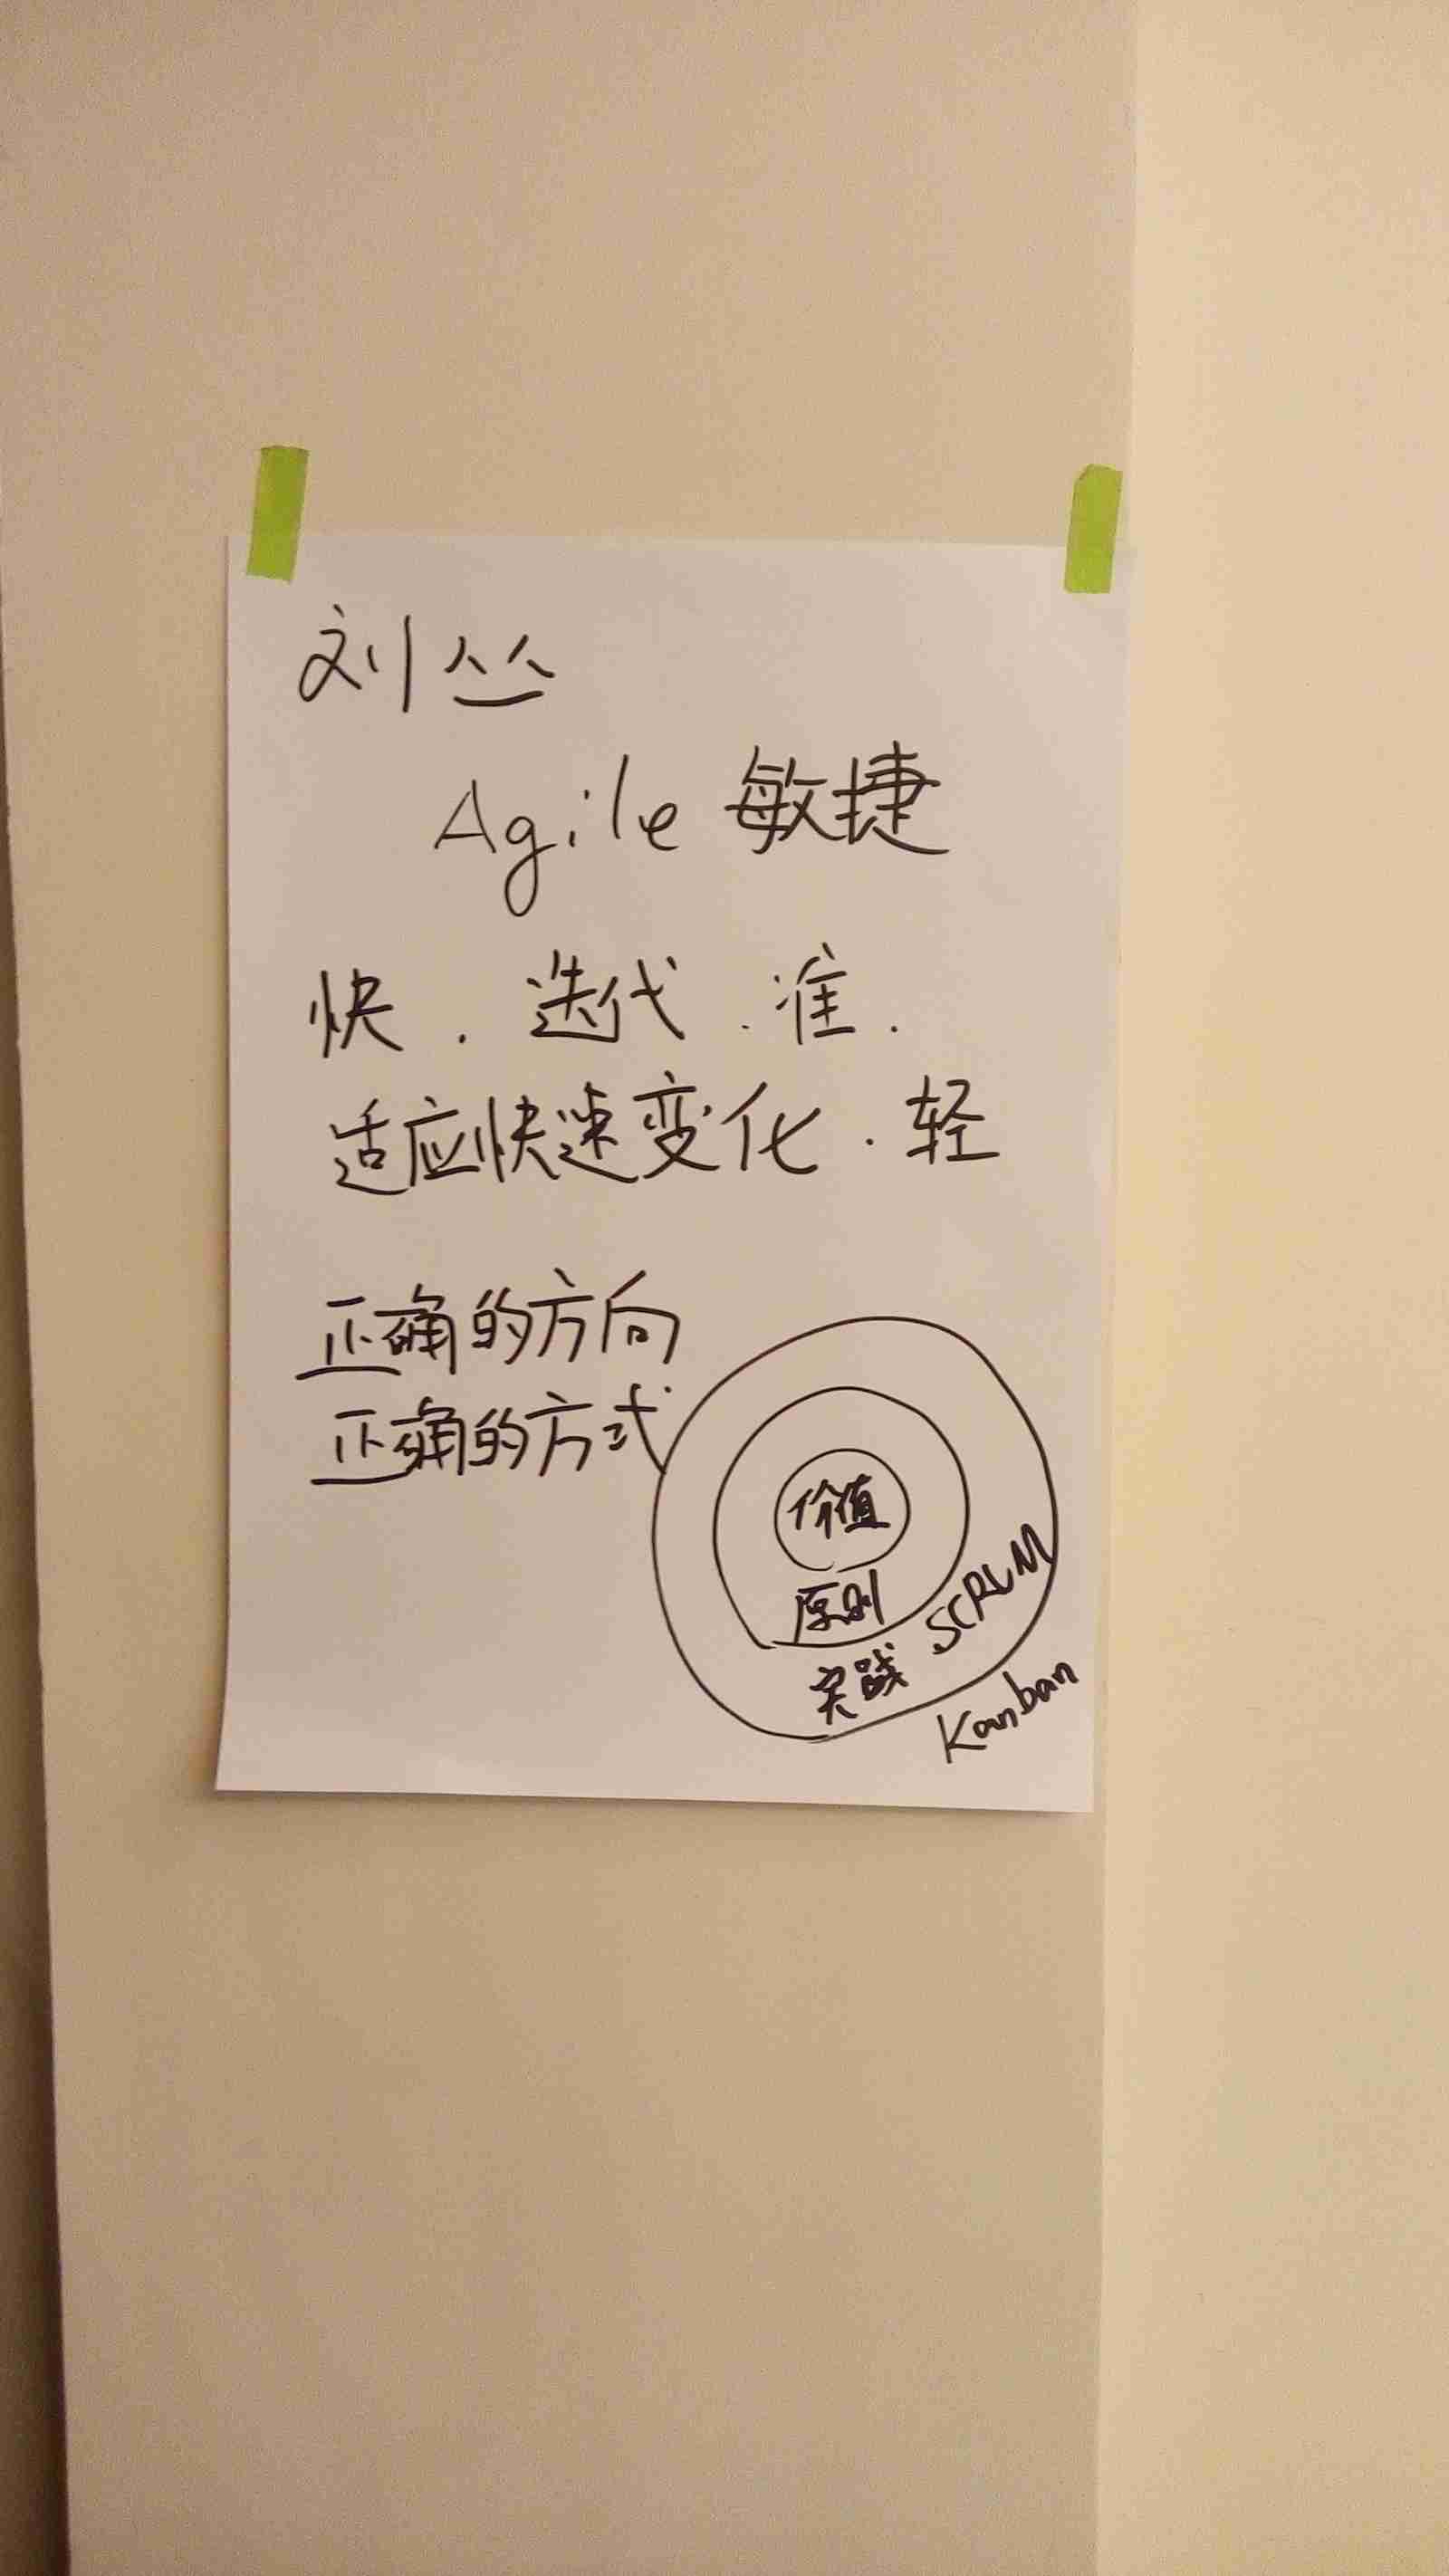 刘丛
Agile 敏捷
快．迭代．准．
适应快速变化．轻
正确的方向
正确的方式
价值
原则
实践 SCRUM
Kanban